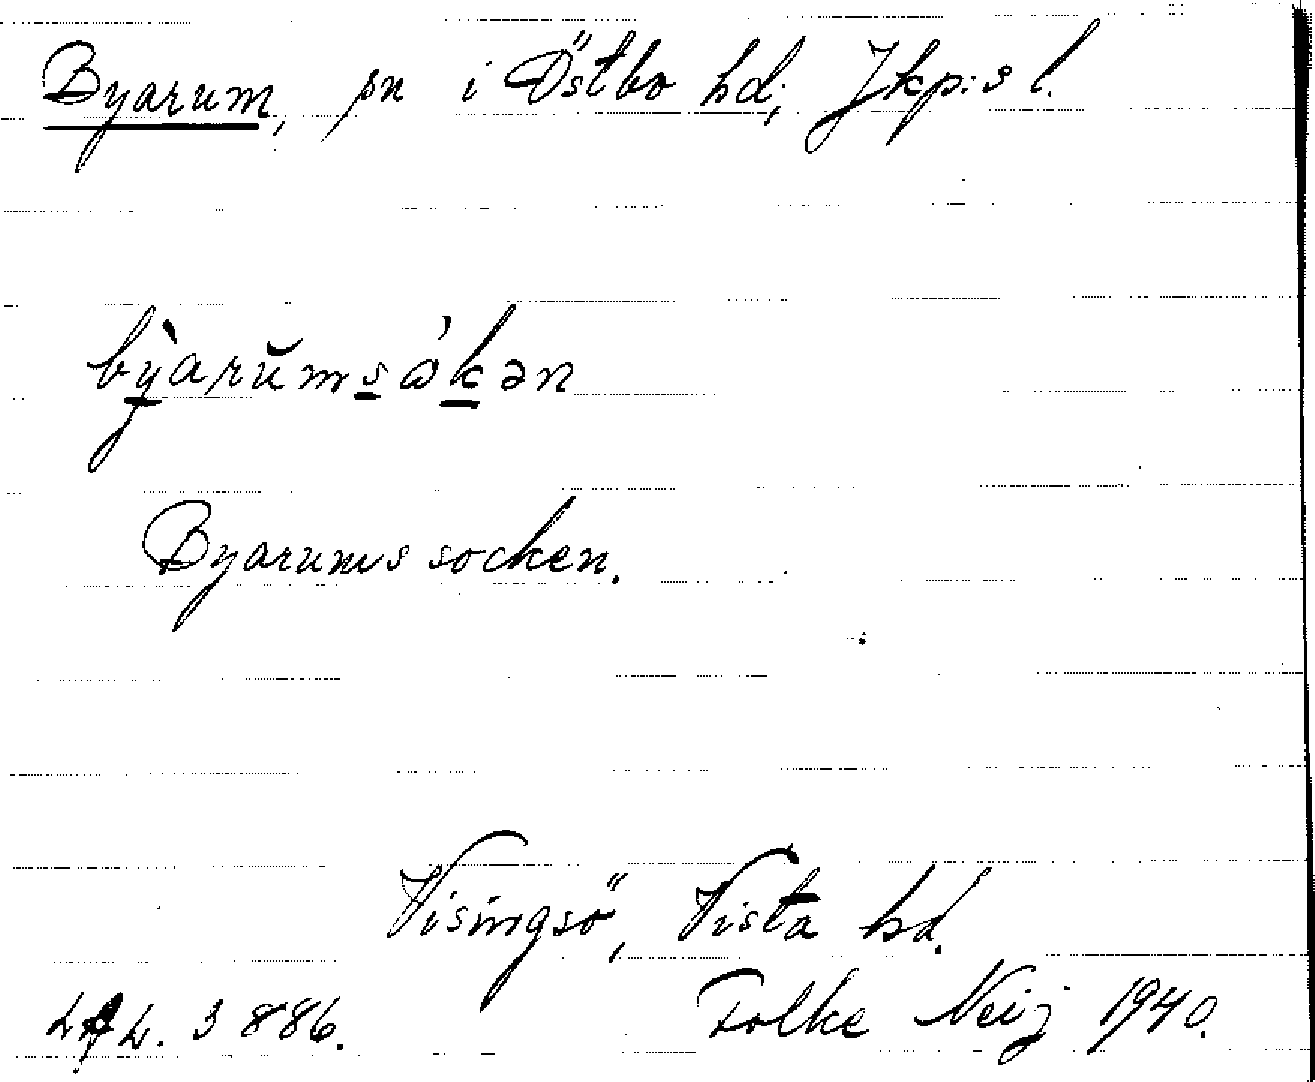 Byarum, sn i Östbo hd, Jkp:s l.
bỳ̱arŭmsɷ́kən
Byarums socken.
Visingsö, Vista hd.
3886. Folke Neij 1940.